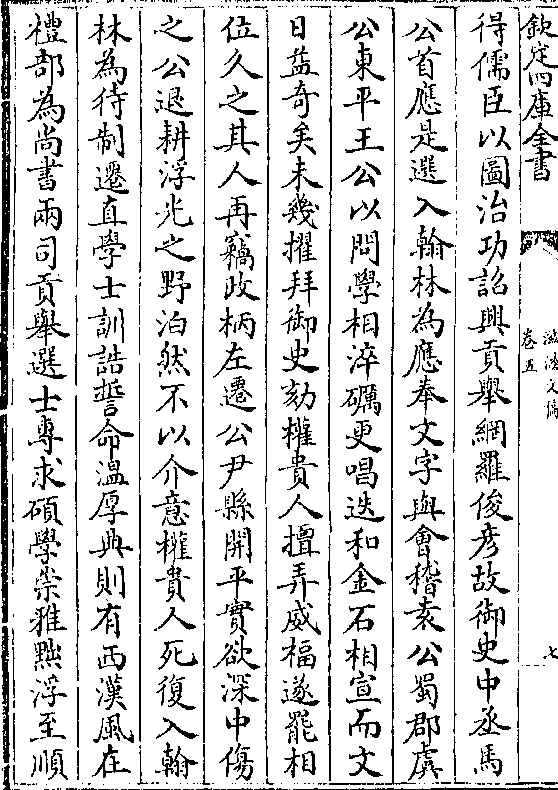 欽定四庫全書
滋溪文稿
卷五
七
得儒臣以圖治功詔興貢舉網羅俊彥故御史中丞馬
公首應是選入翰林為應奉文字與會稽袁公蜀郡虞
公東平王公以問學相淬礪更唱迭和金石相宣而文
日益奇矣未幾擢拜御史劾權貴人擅弄威福遂罷相
位久之其人再竊政柄左遷公尹縣開平實欲深中傷
之公退耕浮光之野泊然不以介意權貴人死復入翰
林為待制遷直學士訓誥誓命溫厚典則有西漢風在
禮部為尚書兩司貢舉選士專求碩學崇雅黜浮至順